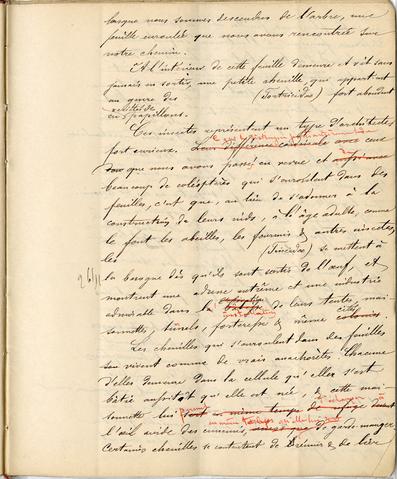 lorsque nous sommes descendus de l'arbre, une
feuille enroulée que nous avons rencontrée sur
notre chemin.
A l'intérieur de cette feuille demeure et vit sans
jamais en sortir, une petite chenille, qui appartient
au genre des (Tortricidae) fort abondant
en papillons.
Ces insectes représentent un type d'architectes
fort curieux. Leur différence avec ceux
que nous avons passé en revue et
beaucoup de coléoptères qui s'enroulent dans des
feuilles, c'est que, au lieu de s'adonner à la
construction de leurs nids, à l'âge adulte, comme
le font les abeilles, les fourmis & autres insectes,
les (Tineidae) se mettent à
la besogne dès qu'ils sont sortis de l'œuf, et
26/11
montrent une adresse extrême et une industrie
admirable dans la de leurs tentes, mai-
sonnettes, tunnels, forteresses & même
Les chenilles qui s'enroulent dans des feuilles
y vivent comme de vrais anachorètes. Chacune
d'elles demeure dans la cellule qu'elle s'est
bâtie aussitôt qu'elle est née, & cette mai-
sonnette en même temps de refuge
l'œil avide des ennemis, de garde-manger.
Certaines chenilles se contentent de réunir & de lier